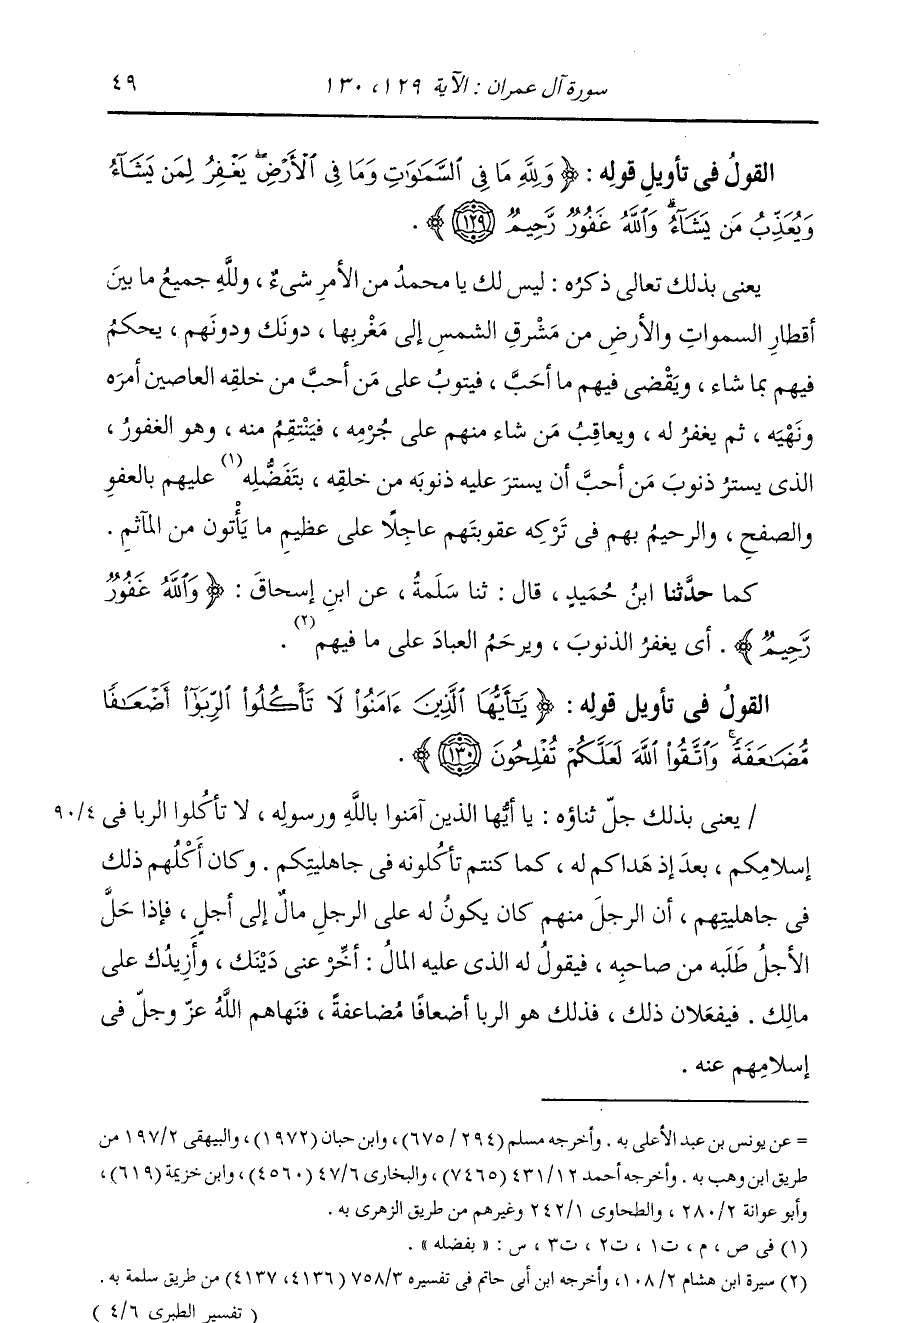 سورة آل عمران : الآية ١٢٩، ١٣٠ ٤٩
القولُ فى تأويلِ قولِه : ﴿ وَلِلَّهِ مَا فِى ٱلسَّمَٰوَٰتِ وَمَا فِى ٱلْأَرْضِۚ يَغْفِرُ لِمَن يَشَآءُ
وَيُعَذِّبُ مَن يَشَآءُۗ وَٱللَّهُ غَفُورٌ رَّحِيمٌ ١٢٩ ﴾ .
يعنى بذلك تعالى ذكرُه : ليس لك يا محمدُ من الأمرِ شىءٌ ، وللَّهِ جميعُ ما بينَ
أقطارِ السمواتِ والأرضِ من مَشْرقِ الشمسِ إلى مَغْربِها ، دونَك ودونَهم ، يحكمُ
فيهم بما شاء ، ويَقْضى فيهم ما أحَبَّ ، فيتوبُ على مَن أحبَّ من خلقِه العاصين أمرَه
ونَهْيَه ، ثم يغفرُ له ، ويعاقِبُ مَن شاء منهم على جُرْمِه ، فيَنْتقِمُ منه ، وهو الغفورُ ،
الذى يسترُ ذنوبَ مَن أحبَّ أن يسترَ عليه ذنوبَه من خلقِه ، بتَفَضُّلِه(١) عليهم بالعفوِ
والصفحِ ، والرحيمُ بهم فى تَرْكِه عقوبتَهم عاجلًا على عظيمِ ما يَأْتون من المآثمِ .
كما حدَّثنا ابنُ حُمَيدٍ ، قال : ثنا سَلَمةُ ، عن ابنِ إسحاقَ : ﴿ وَٱللَّهُ غَفُورٌ
رَّحِيمٌ ﴾ . أى يغفرُ الذنوبَ ، ويرحَمُ العبادَ على ما فيهم(٢) .
القولُ فى تأويلِ قولِه : ﴿ يَٰٓأَيُّهَا ٱلَّذِينَ ءَامَنُوا۟ لَا تَأْكُلُوا۟ ٱلرِّبَوٰٓا۟ أَضْعَٰفًا
مُّضَٰعَفَةًۖ وَٱتَّقُوا۟ ٱللَّهَ لَعَلَّكُمْ تُفْلِحُونَ ١٣٠ ﴾ .
/ يعنى بذلك جلّ ثناؤه : يا أيُّها الذين آمَنوا باللَّهِ ورسولِه ، لا تأكُلوا الربا فى ٩٠/٤
إسلامِكم ، بعدَ إذ هَداكم له ، كما كنتم تأكُلونه فى جاهليتِكم . وكان أَكْلُهم ذلك
فى جاهليتِهم ، أن الرجلَ منهم كان يكونُ له على الرجلِ مالٌ إلى أجلٍ ، فإذا حَلَّ
الأجلُ طَلَبه من صاحبِه ، فيقولُ له الذى عليه المالُ : أخِّرْ عنى دَيْنَك ، وأَزِيدُك على
مالِك . فيفعَلان ذلك ، فذلك هو الربا أضعافًا مُضاعفةً ، فنَهاهم اللَّهُ عزّ وجلّ فى
إسلامِهم عنه .
= عن يونس بن عبد الأعلى به . وأخرجه مسلم (٦٧٥/٢٩٤) ، وابن حبان (١٩٧٢) ، والبيهقى ١٩٧/٢ من
طريق ابن وهب به . وأخرجه أحمد ٤٣١/١٢ (٧٤٦٥) ، والبخارى ٤٧/٦ (٤٥٦٠) ، وابن خزيمة (٦١٩) ،
وأبو عوانة ٢٨٠/٢ ، والطحاوى ٢٤٢/١ وغيرهم من طريق الزهرى به .
(١) فى ص ، م ، ت١ ، ت٢ ، ت٣ ، س : « بفضله » .
(٢) سيرة ابن هشام ١٠٨/٢، وأخرجه ابن أبى حاتم فى تفسيره ٧٥٨/٣ (٤١٣٦، ٤١٣٧) من طريق سلمة به .
( تفسير الطبرى ٤/٦ )